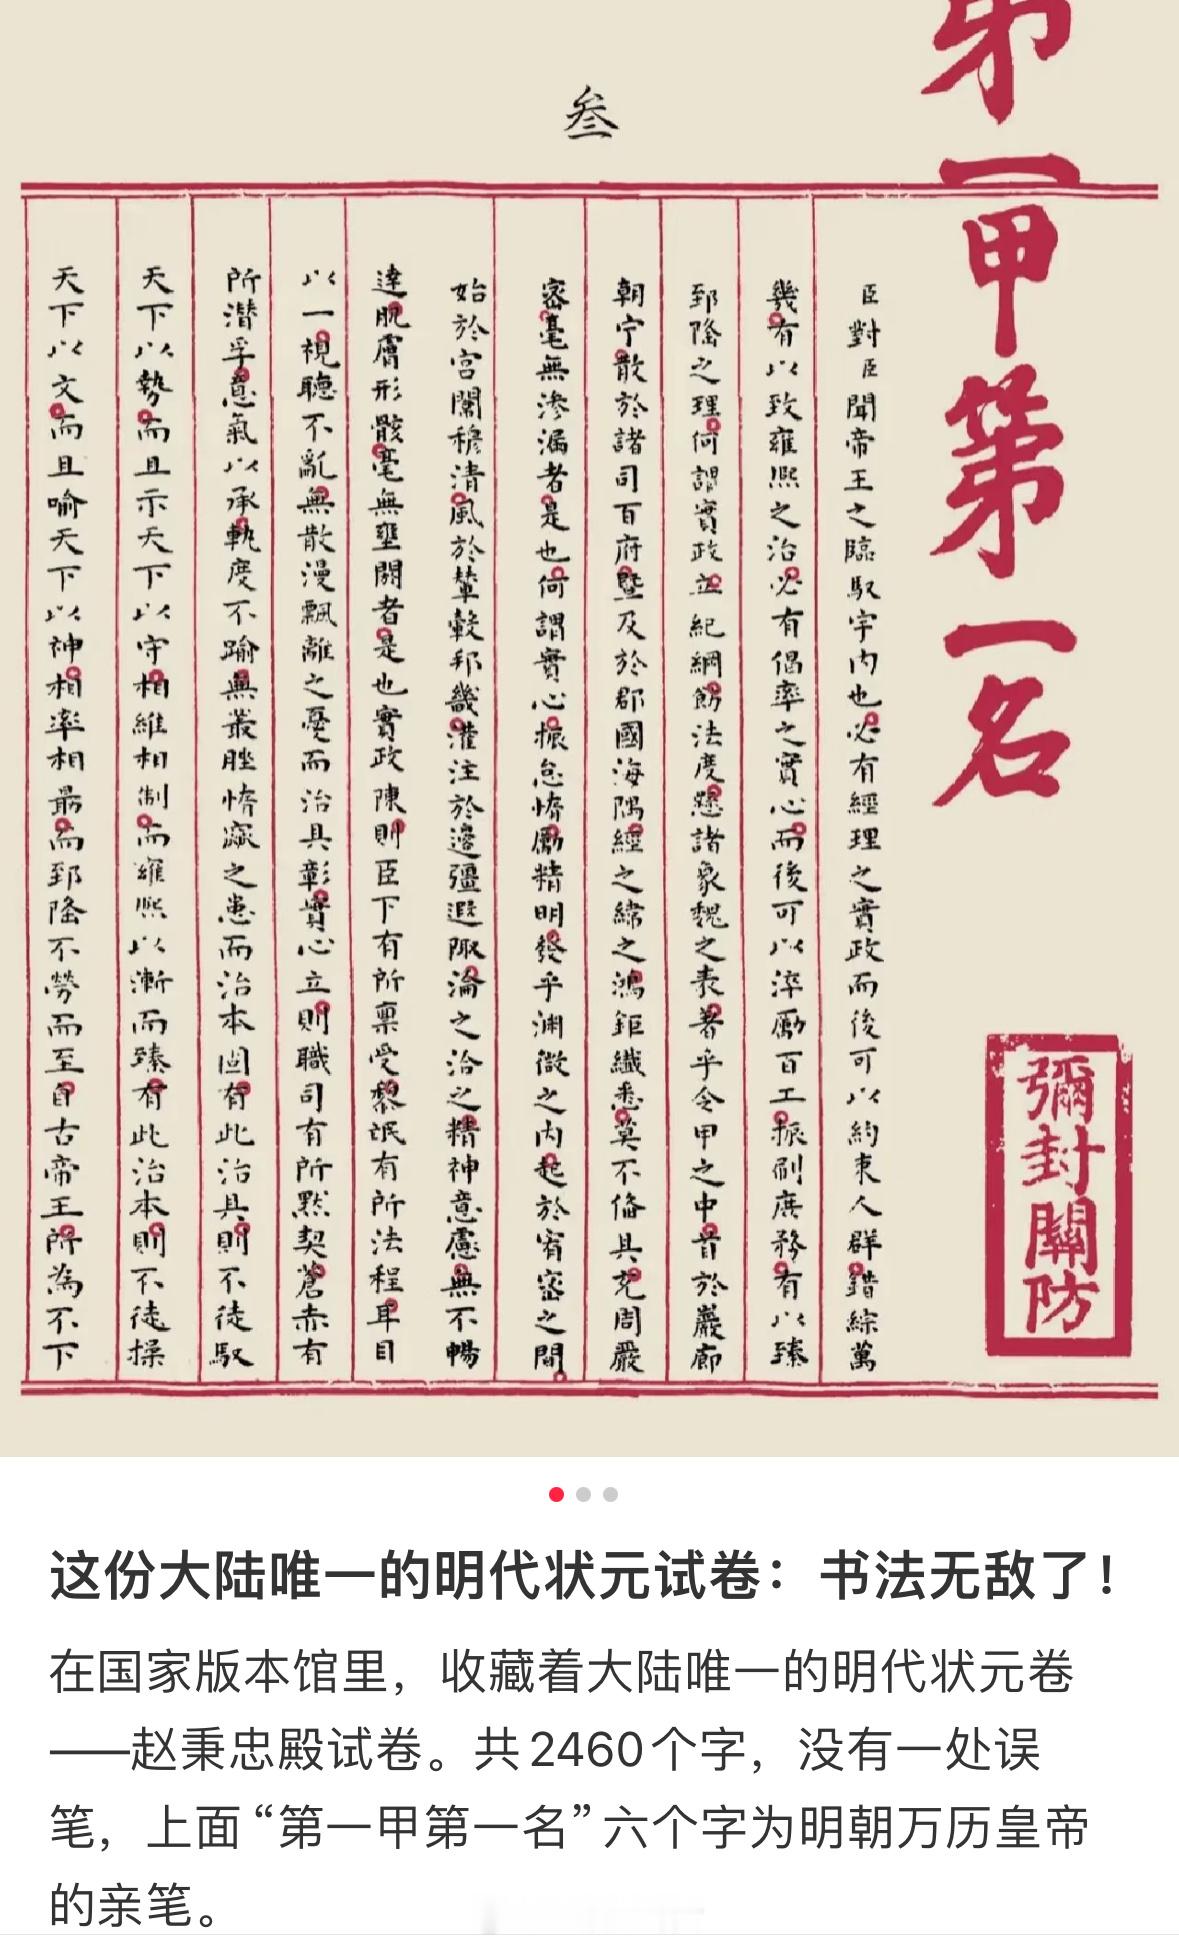 第一甲第一名
彌封關防
叁
臣對臣聞帝王之臨馭宇內也必有經理之實政而後可以約束人群錯綜萬
幾有以致雍熙之治必有倡率之實心而後可以淬勵百工振刷庶務有以臻
郅隆之理何謂實政立紀綱飭法度懸諸象魏之表著乎令甲之中首於巖廊
朝宁散於諸司百府暨及於郡國海隅經之緯之鴻鉅纖悉莫不備具充周嚴
密毫無滲漏者是也何謂實心振怠惰勵精明發乎淵微之內起於宥密之間
始於宮闈穆清風於輦轂邦畿灌注於邊疆遐陬淪之洽之精神意慮無不暢
達肌膚形骸毫無壅閼者是也實政陳則臣下有所稟受黎氓有所法程耳目
以一視聽不亂無散漫飄離之憂而治具彰實心立則職司有所默契蒼赤有
所潛孚意氣以承軌度不踰無叢脞惰窳之患而治本固有此治具則不徒馭
天下以勢而且示天下以守相維相制而雍熙以漸而臻有此治本則不徒操
天下以文而且喻天下以神相率相勗而郅隆不勞而至自古帝王所為不下
这份大陆唯一的明代状元试卷：书法无敌了！
在国家版本馆里，收藏着大陆唯一的明代状元卷
——赵秉忠殿试卷。共2460个字，没有一处误
笔，上面“第一甲第一名”六个字为明朝万历皇帝
的亲笔。